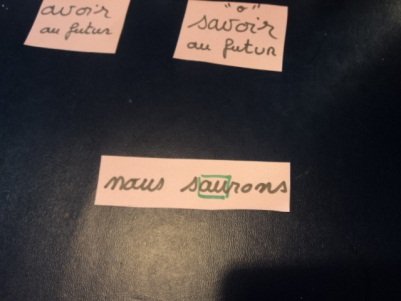 avoir
au futur
"o"
savoir
au futur
nous saurons